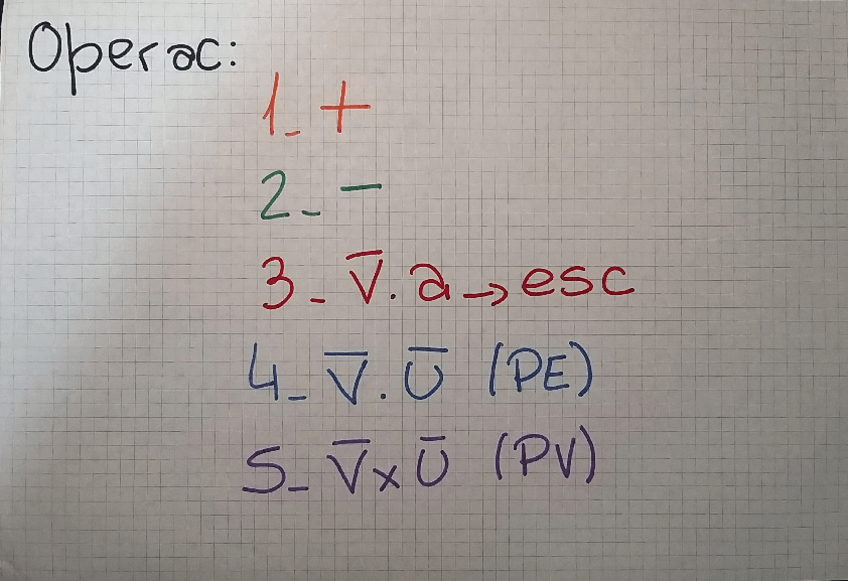 Operac:
1_ +
2_ −
3_ V̅. a → esc
4_ V̅. U̅ (PE)
5_ V̅ x U̅ (PV)